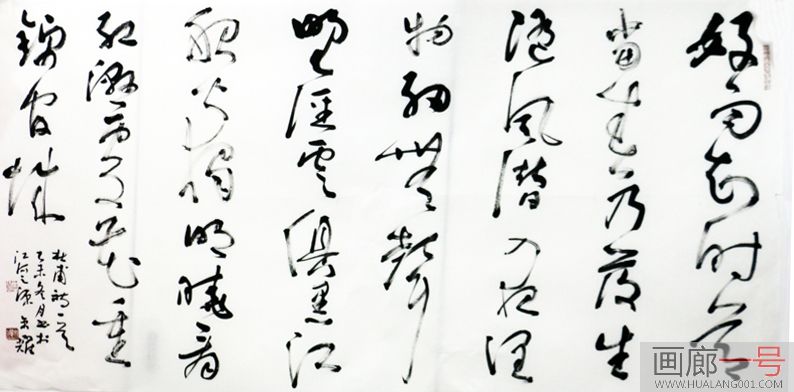 好雨知时节
当春乃发生
随风潜入夜润
物细無聲
野径雲俱黑江
船火独明曉看
红湿处花重
锦官城
杜甫诗一首
乙未冬月书于
江河之源
画廊一号
WWW.HUALANG001.COM